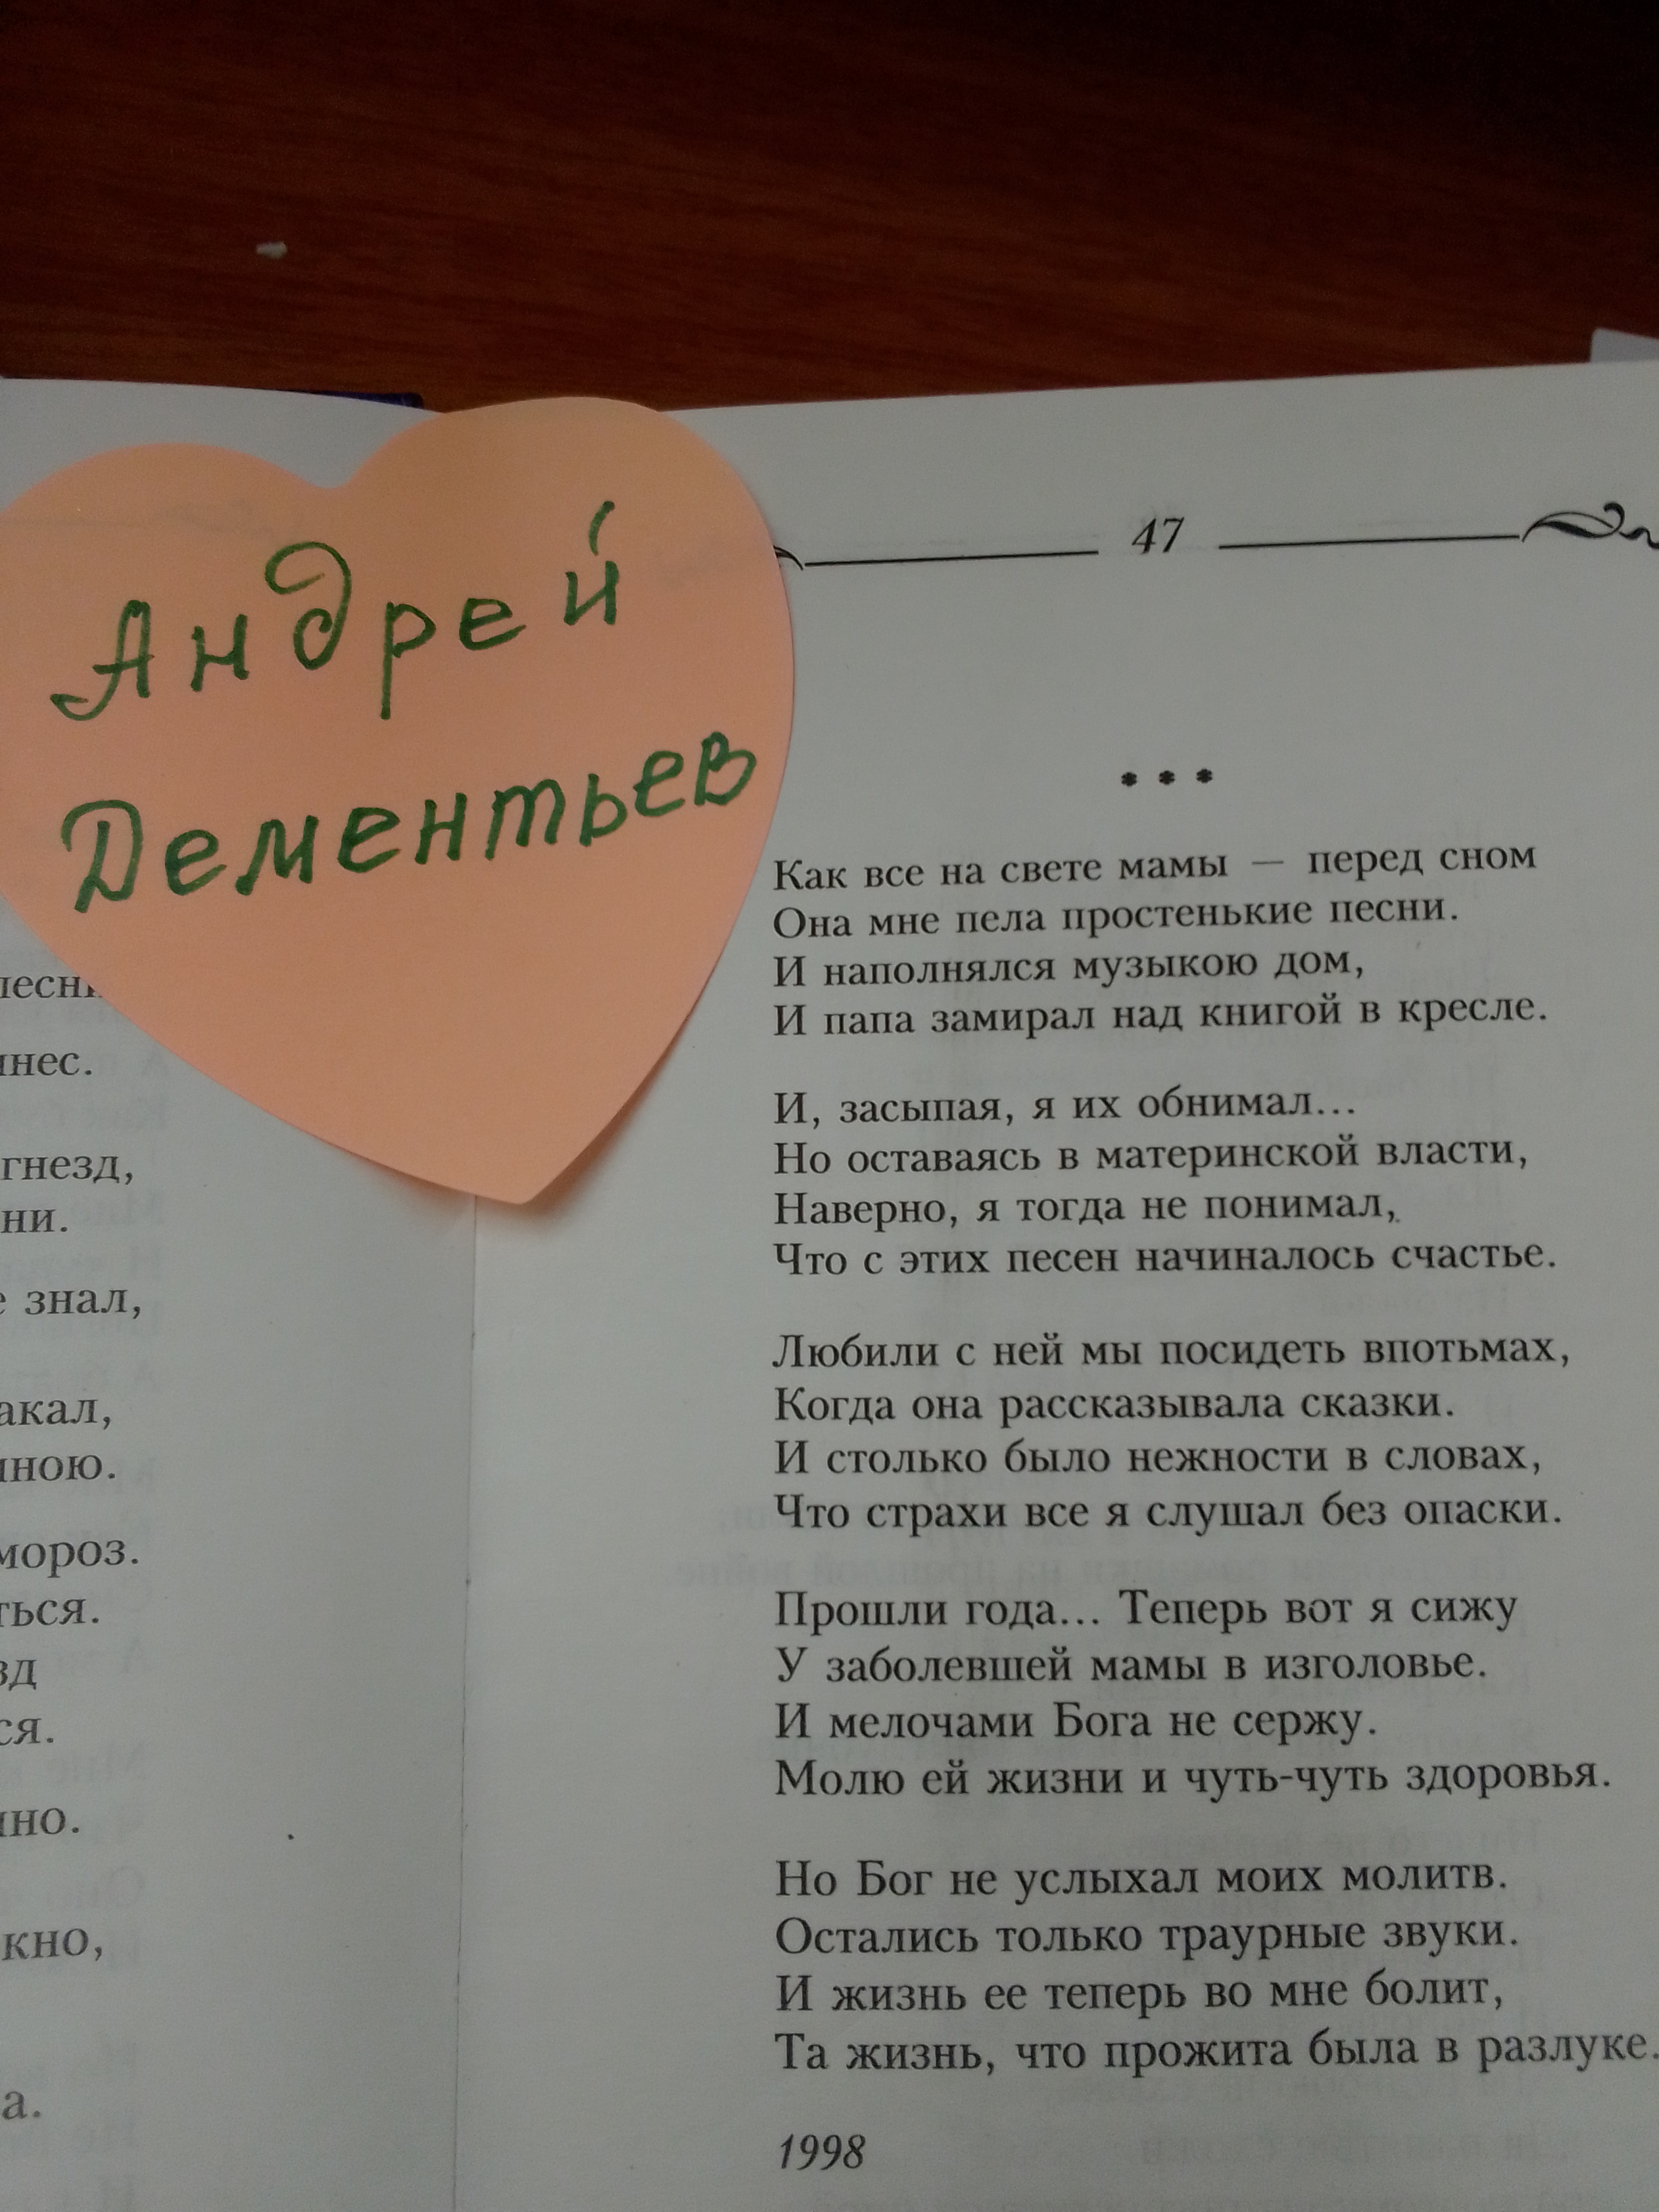 Андрей
Дементьев
гнезд,
знал,
мороз.
47
* * *
Как все на свете мамы — перед сном
Она мне пела простенькие песни.
И наполнялся музыкою дом,
И папа замирал над книгой в кресле.
И, засыпая, я их обнимал...
Но оставаясь в материнской власти,
Наверно, я тогда не понимал,
Что с этих песен начиналось счастье.
Любили с ней мы посидеть впотьмах,
Когда она рассказывала сказки.
И столько было нежности в словах,
Что страхи все я слушал без опаски.
Прошли года... Теперь вот я сижу
У заболевшей мамы в изголовье.
И мелочами Бога не сержу.
Молю ей жизни и чуть-чуть здоровья.
Но Бог не услыхал моих молитв.
Остались только траурные звуки.
И жизнь ее теперь во мне болит,
Та жизнь, что прожита была в разлуке.
1998